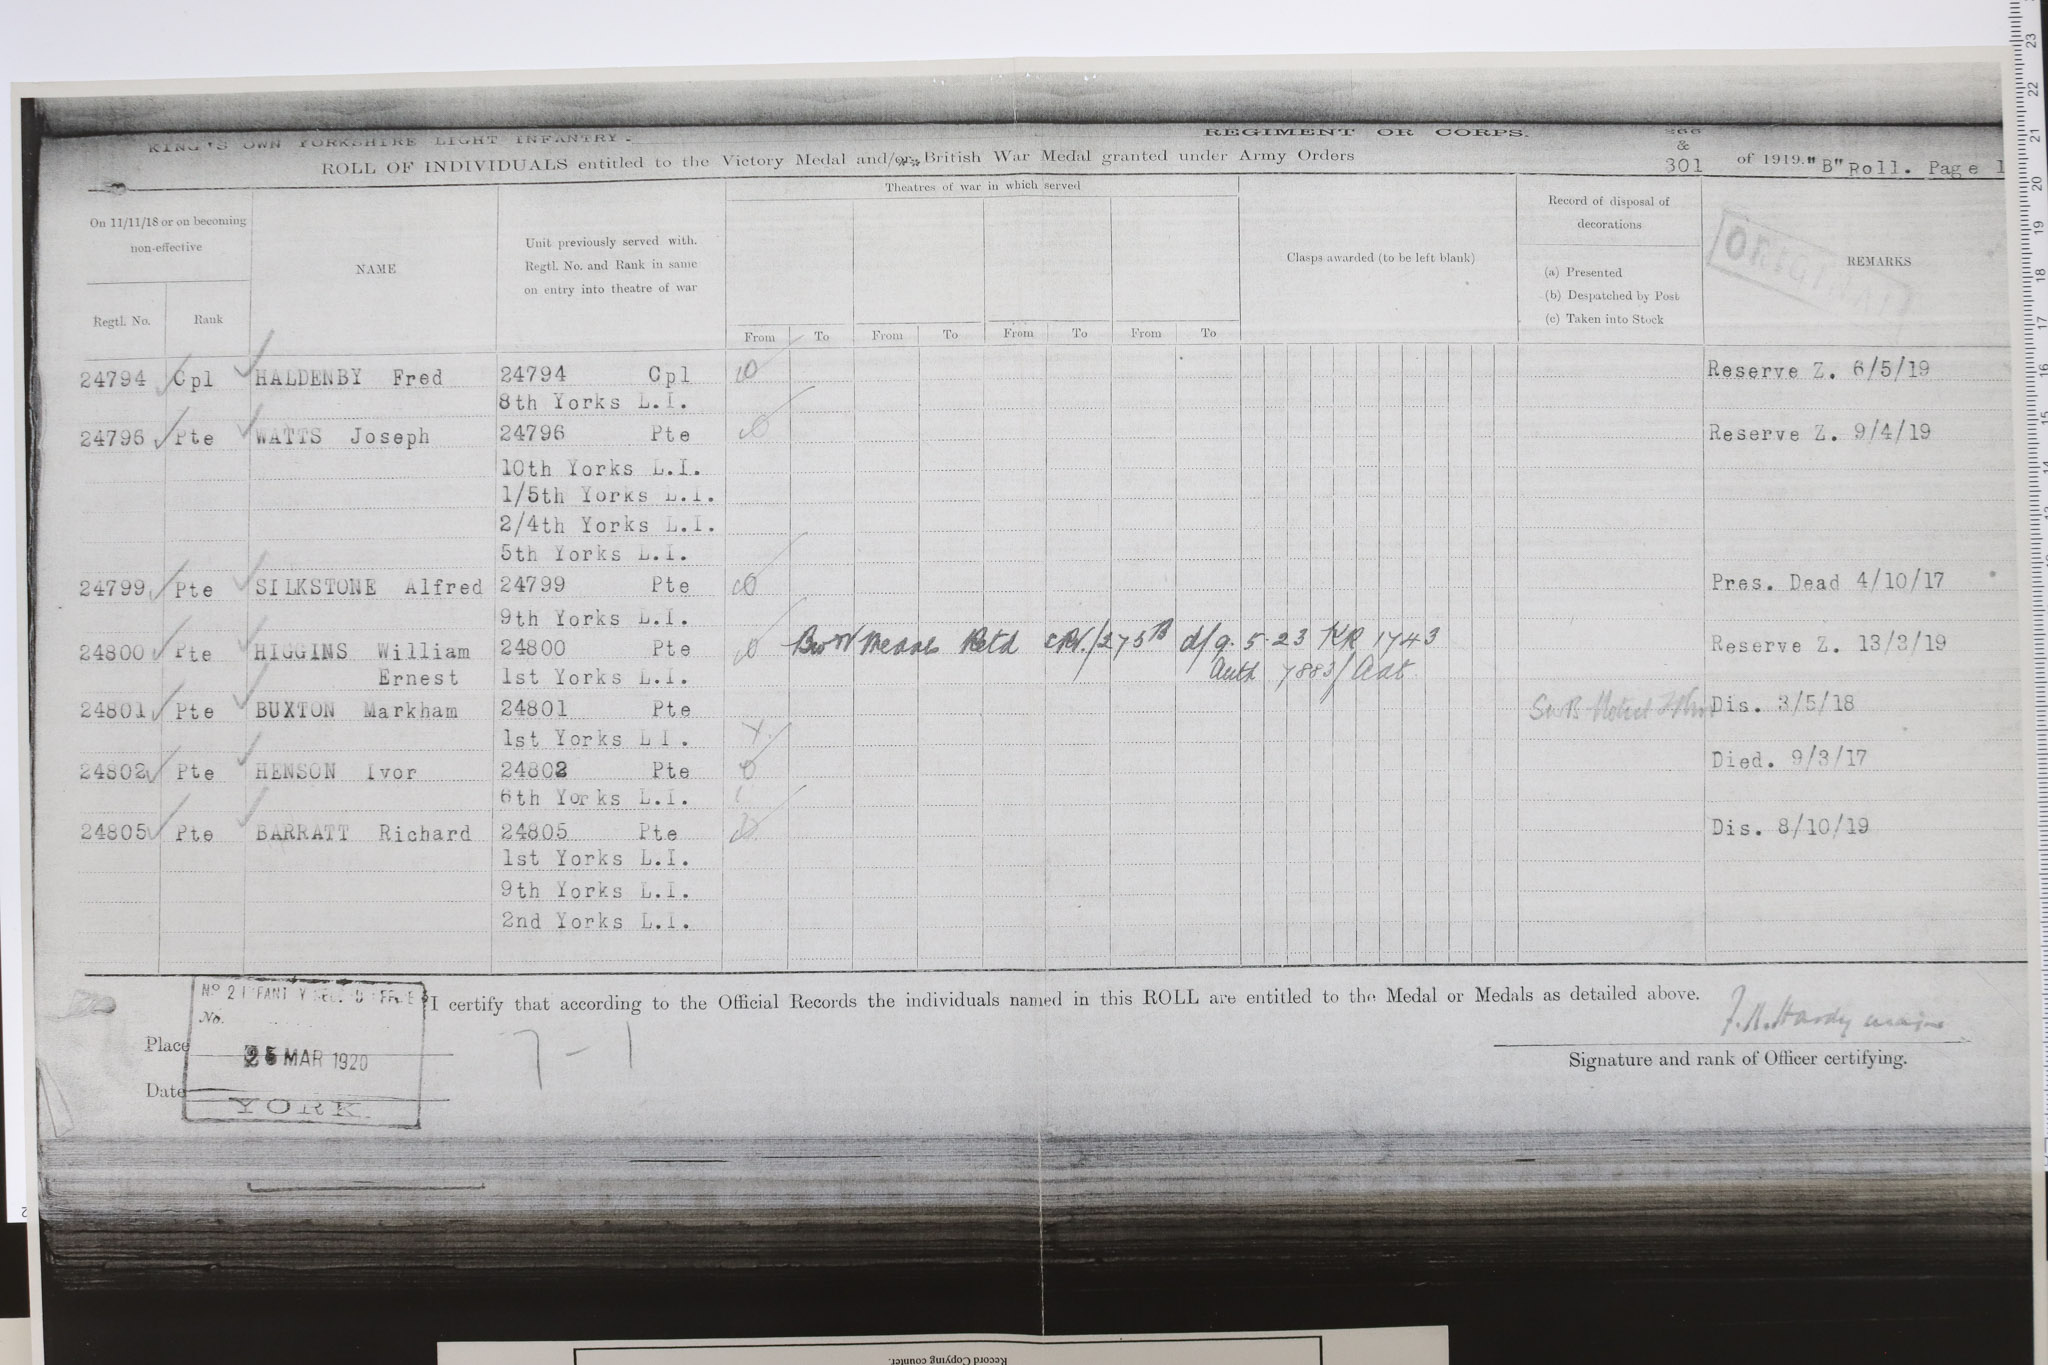 KING'S OWN YORKSHIRE LIGHT INFANTRY. REGIMENT OR CORPS. 266
&
ROLL OF INDIVIDUALS entitled to the Victory Medal and/or British War Medal granted under Army Orders 301 of 1919. "B" Roll. Page 1
On 11/11/18 or on becoming non-effective
Regtl. No.
Rank
NAME
Unit previously served with.
Regtl. No. and Rank in same
on entry into theatre of war
Theatres of war in which served
From To From To From To From To
Clasps awarded (to be left blank)
Record of disposal of
decorations
(a) Presented
(b) Despatched by Post
(c) Taken into Stock
ORIGINAL
REMARKS
24794 Cpl HALDENBY Fred 24794 Cpl Reserve Z. 6/5/19
8th Yorks L.I.
24796 Pte WATTS Joseph 24796 Pte Reserve Z. 9/4/19
10th Yorks L.I.
1/5th Yorks L.I.
2/4th Yorks L.I.
5th Yorks L.I.
24799 Pte SILKSTONE Alfred 24799 Pte Pres. Dead 4/10/17
9th Yorks L.I.
24800 Pte HIGGINS William 24800 Pte Medals Retd /275 B d/9.5.23 KR 1743 Reserve Z. 13/3/19
Ernest 1st Yorks L.I. Auth 7883/Adt.
24801 Pte BUXTON Markham 24801 Pte Dis. 3/5/18
1st Yorks L I.
24802 Pte HENSON Ivor 24802 Pte Died. 9/3/17
6th Yorks L.I.
24805 Pte BARRATT Richard 24805 Pte Dis. 8/10/19
1st Yorks L.I.
9th Yorks L.I.
2nd Yorks L.I.
I certify that according to the Official Records the individuals named in this ROLL are entitled to the Medal or Medals as detailed above.
No.
Place
MAR 1920
Date
YORK.
7-1
Hardy
Signature and rank of Officer certifying.
Record Copying counter.